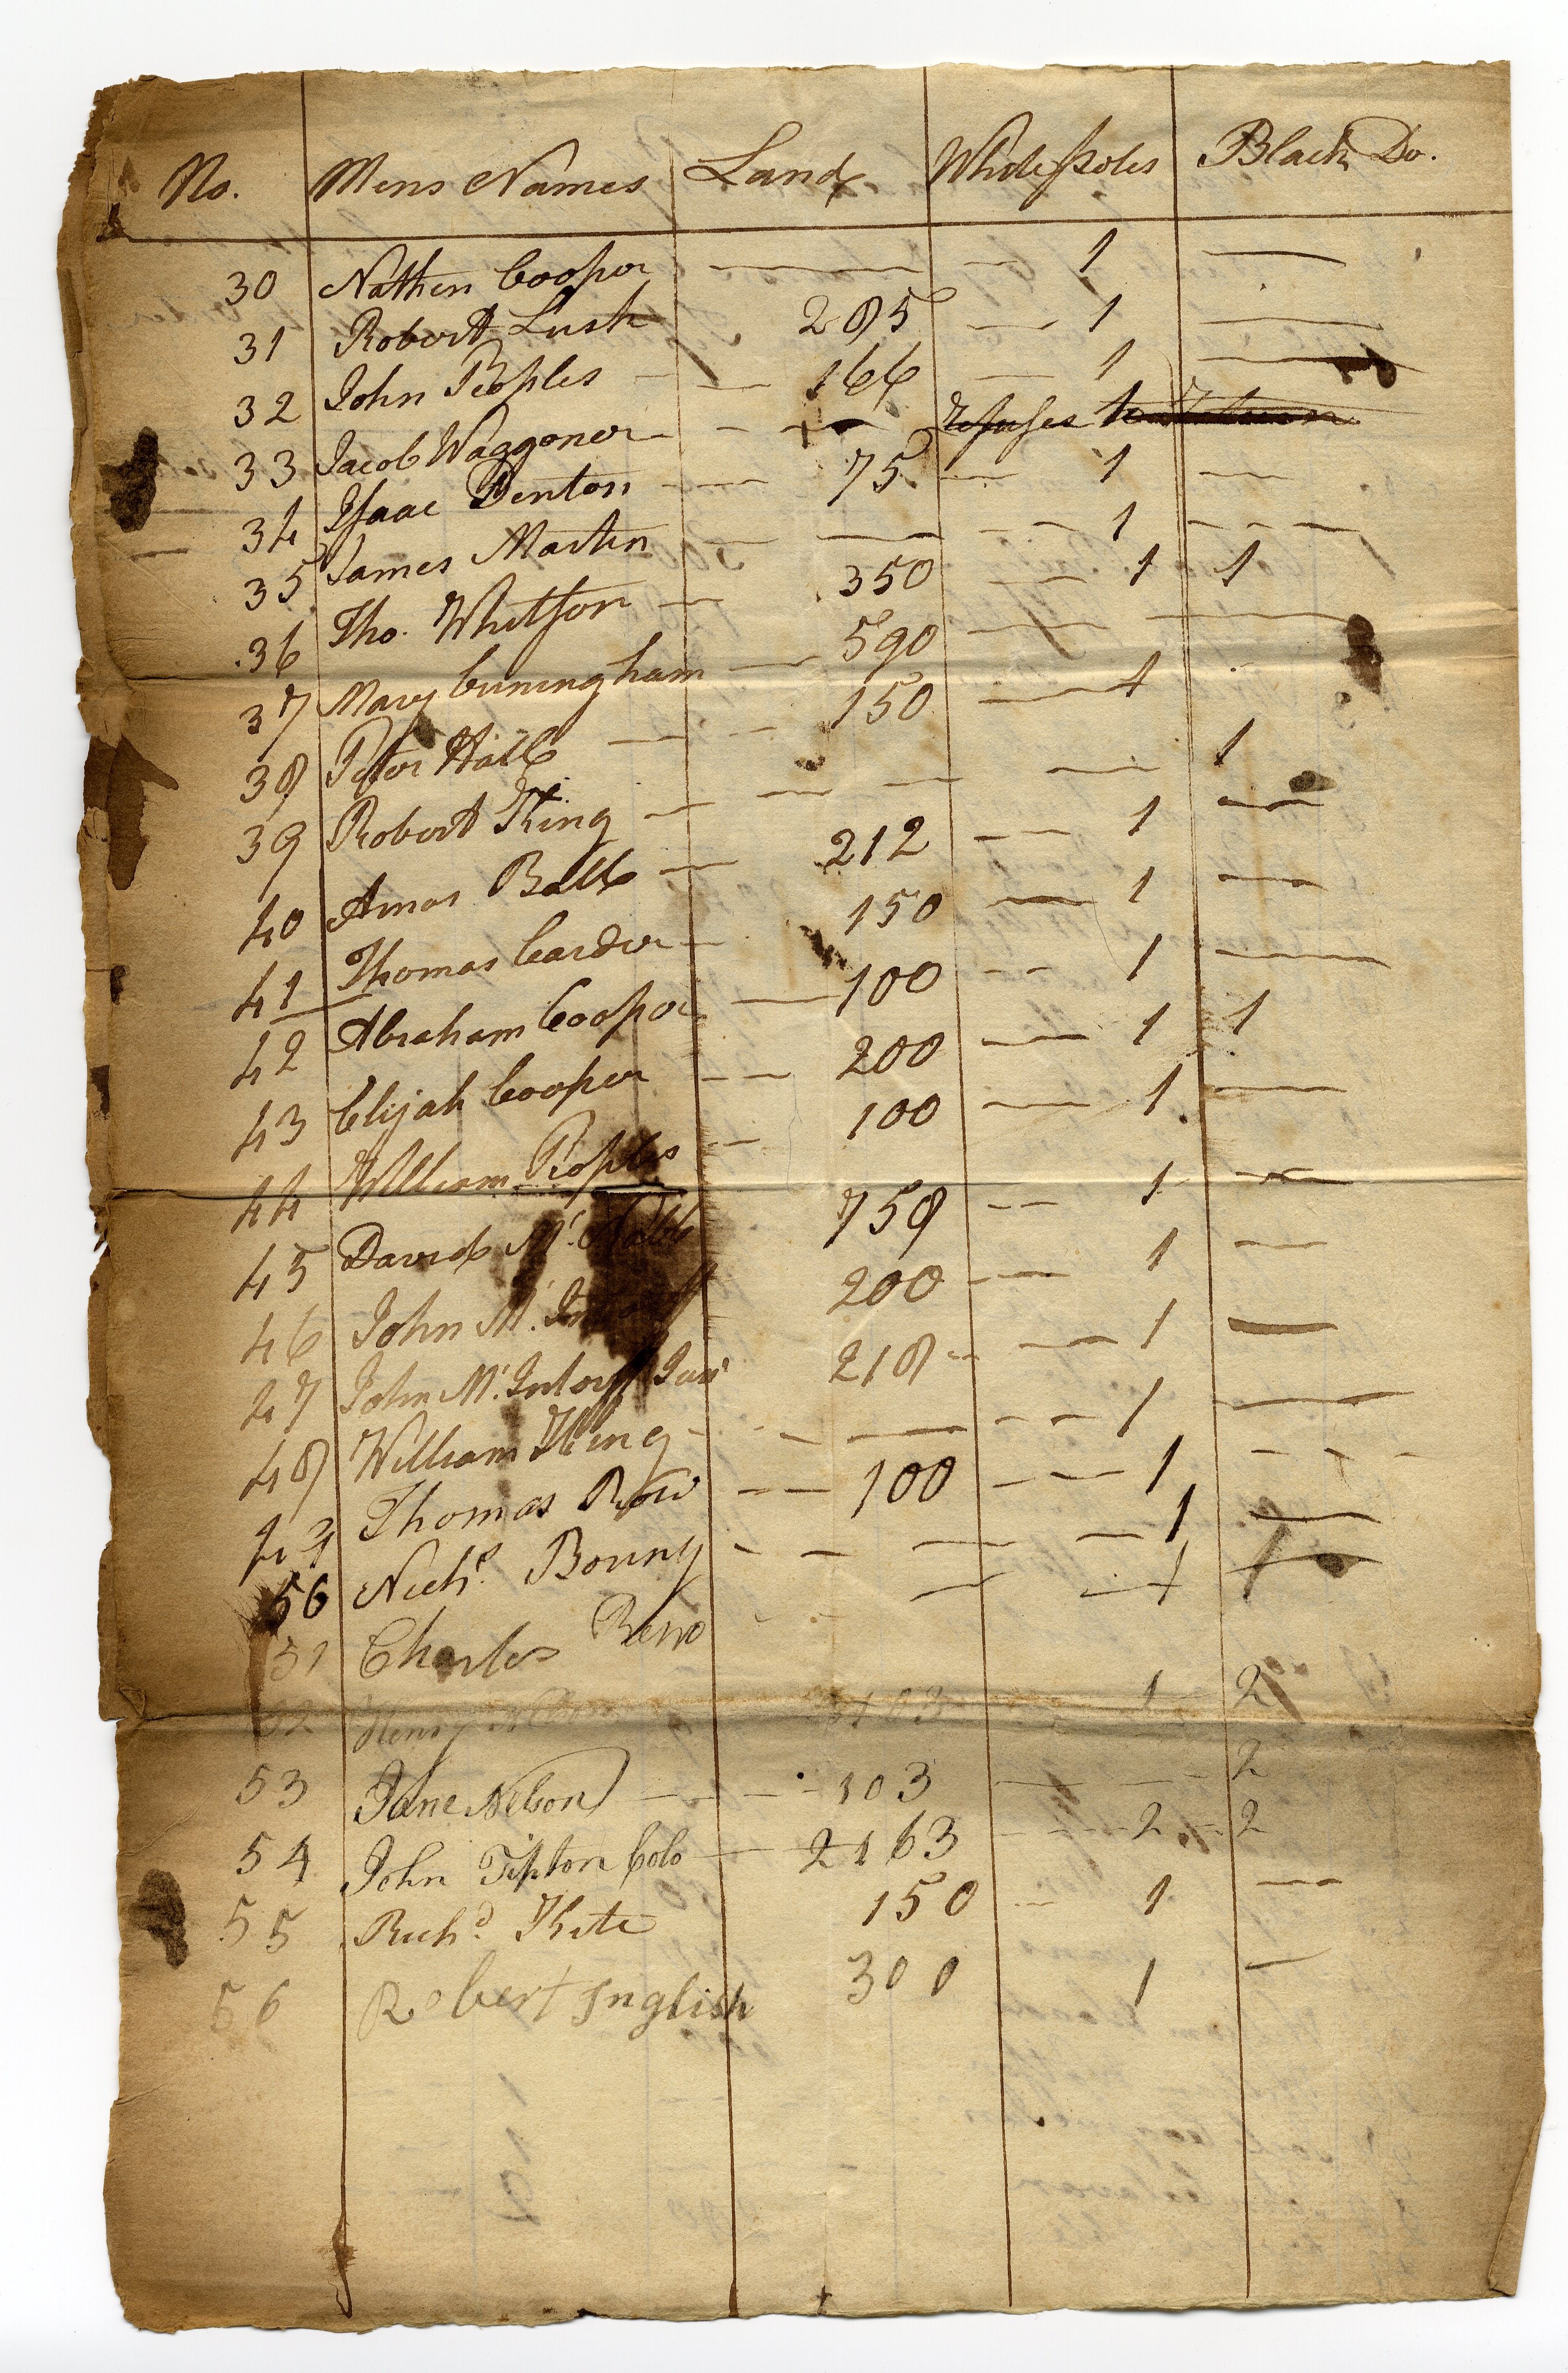 No. Mens Names Land White Poles Black Do.
30 Nathen Cooper — — 1 —
31 Robert Lusk 285 — 1 —
32 John Peoples — — 166 — 1 —
33 Jacob Waggoner — — — refuses to
34 Isaac Denton — — 75 — 1 —
35 James Martin — — — — 1 — — —
36 Tho. Whitson — 350 — — 1 1
37 Mary Cuningham — 590 — —
38 Peter Hall — — — 150 — 1
39 Robert King — — — — 1
40 Amos Ball — 212 — — 1 —
41 Thomas Carder — 150 — 1 —
42 Abraham Cooper — 100 — — 1 — — —
43 Elijah Cooper — — 200 — 1 1
44 William Peoples — — 100 — 1 —
45 David Mc. 758 — — 1 —
46 John Mc. 200 — — 1 —
47 John Mc. Intorff Junr 218 — — 1 —
48 William King — — — — — 1 —
49 Thomas Row — — 100 — — 1 — — —
50 Richd. Bonny — — — — 1 —
51 Charles Reno — — — — 1 1
52 Henry 1 2
53 Jane Nelson — — — 103 — — — 2
54 John Tipton Colo — 2163 — — 2 — 2
55 Richd. Kite 150 — 1 —
56 Robert Inglish 300 1 —